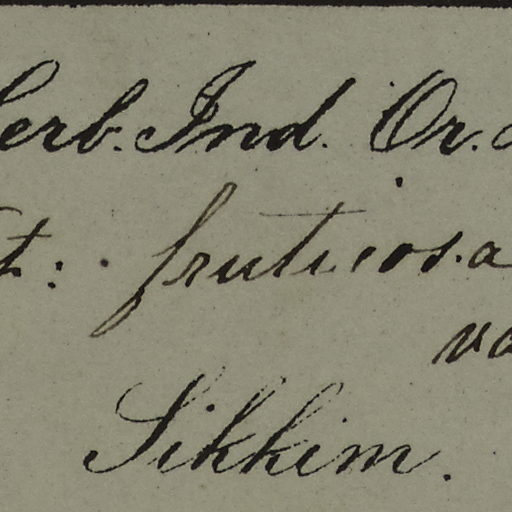 Herb. Ind. Or.
t: fruticosa
va
Sikkim.